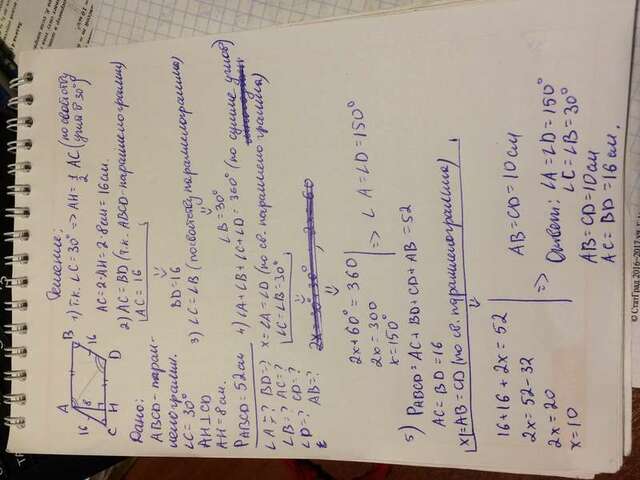 Решение:
A
B
16
8
16
C
H
D
1) т.к. ∠C=30° => AH=1/2 AC (по свойству угла в 30°)
AC=2·AH=2·8см=16см.
2) AC=BD (т.к. ABCD-параллелограмм)
AC=16
⇓
BD=16
3) ∠C=∠B (по свойству параллелограмма)
⇓
∠B=30°
4) ∠A+∠B+∠C+∠D=360° (по сумме углов)
x=∠A=∠D (по св. параллелограмма)
∠C=∠B=30°
⇓
2x=30°+30°, 2x=60
⇓
2x+60°=360
2x=300
x=150°
=> ∠A=∠D=150°
Дано:
ABCD-парал-
лелограмм.
∠C=30°
AH⊥CD
AH=8см.
PABCD=52см
∠A=? BD=?
∠B=? AC=?
∠D=? CD=?
AB=?
5) PABCD=AC+BD+CD+AB=52
AC=BD=16
x=AB=CD (по св. параллелограмма)
⇓
16+16+2x=52
2x=52-32
2x=20
x=10
=> AB=CD=10см
Ответ: ∠A=∠D=150°
∠C=∠B=30°
AB=CD=10см
AC=BD=16см.
© СтатГрад 2016−2017 уч. г.